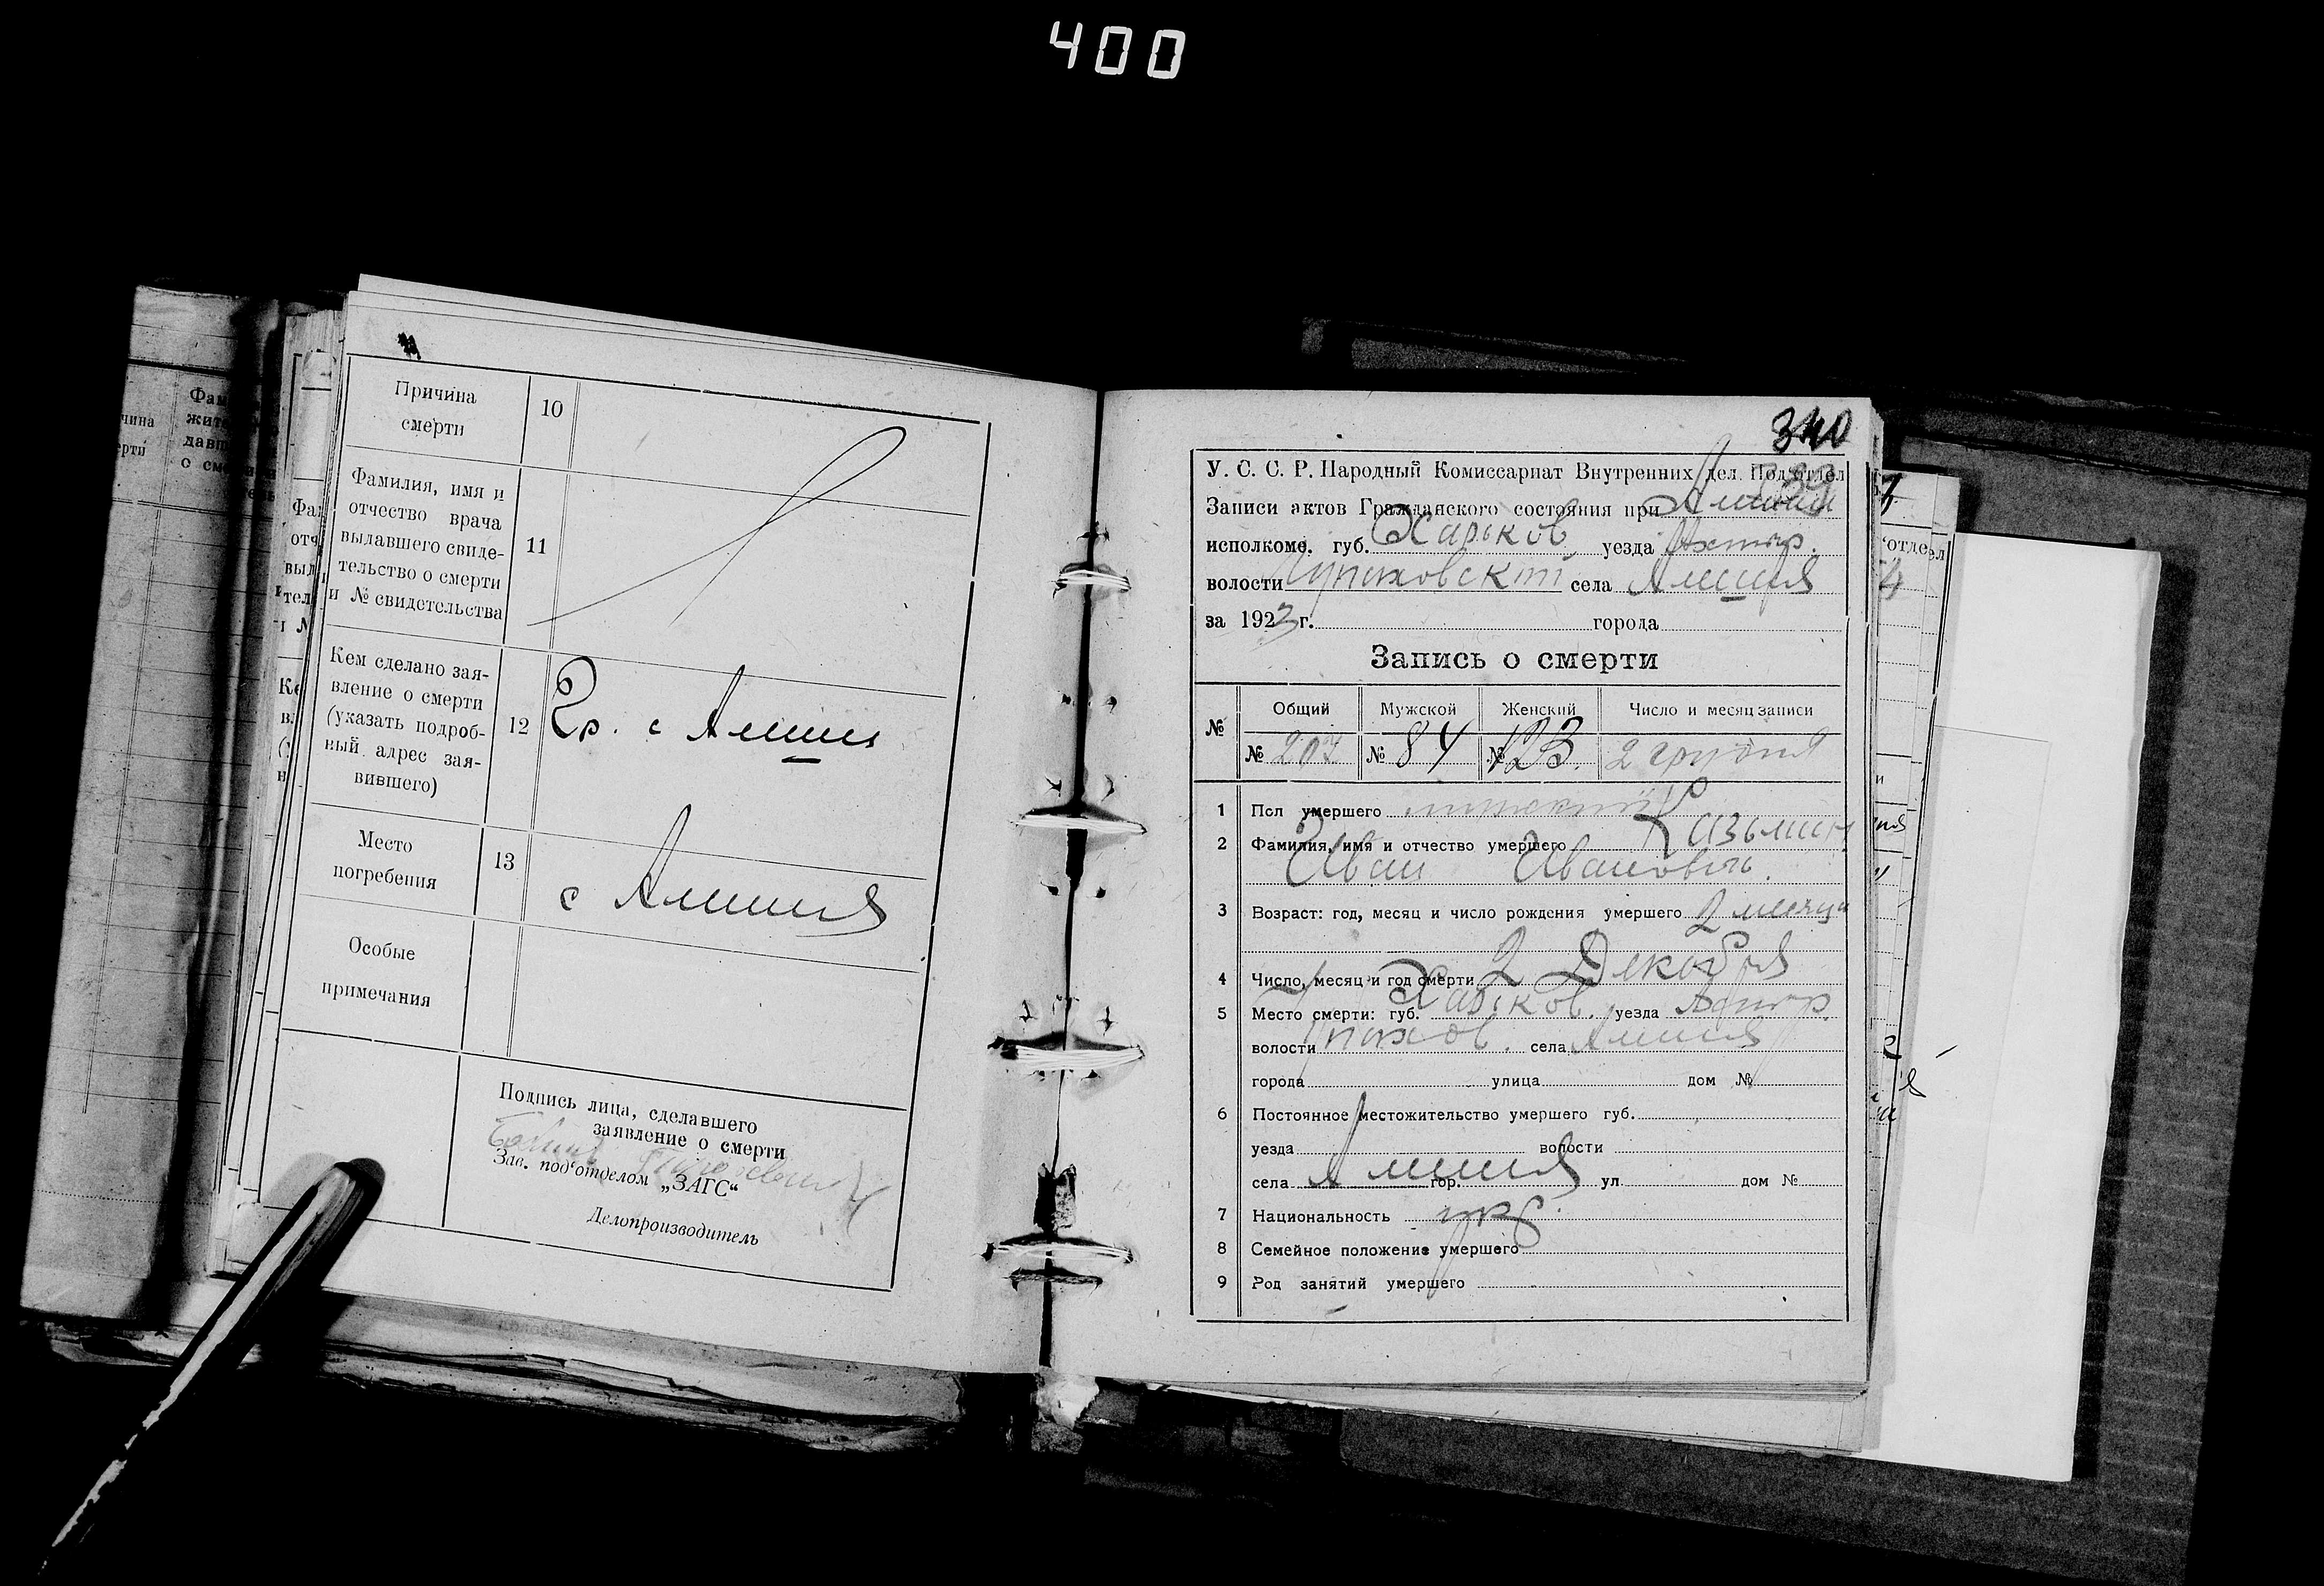 400
Причина
смерти
10
Фамилия, имя и
отчество врача
выдавшего свиде-
тельство о смерти
и № свидетельства
11
Кем сделано зая-
вление о смерти
(указать подроб-
ный адрес зая-
вившего)
12
Гр. с Ямния
Место
погребения
13
с Ямния
Особые
примечания
Подпись лица, сделавшего
заявление о смерти
Зав. под'отделом „ЗАГС“
Делопроизводитель
340
У. С. С. Р. Народный Комиссариат Внутренних дел. Под'отдел
Записи актов Гражданского состояния при
исполкоме. губ. Харьков уезда Ахтыр.
волости села Ямния
за 1923 г. города
Запись о смерти
№ Общий Мужской Женский Число и месяц записи
№ 207 № 84 № 123. 2 грудня
1 Пол умершего мужский
2 Фамилия, имя и отчество умершего
Иван Иванович.
3 Возраст: год, месяц и число рождения умершего 2 месяца
4 Число, месяц и год смерти 2 Декабря
5 Место смерти: губ. Харьков. уезда Ахтыр.
волости села Ямния
города улица дом №
6 Постоянное местожительство умершего губ.
уезда волости
села Ямния гор. ул. дом №
7 Национальность укр.
8 Семейное положение умершего
9 Род занятий умершего